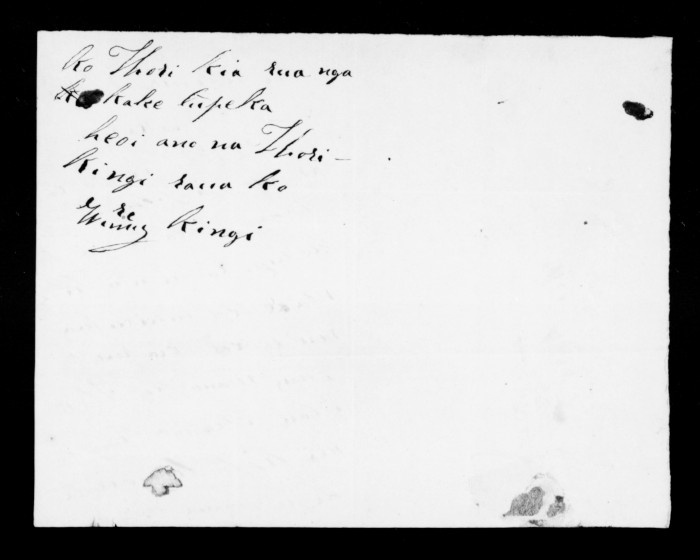 Ko Ihori kia rua nga
kake tupeka
heoi ano na Ihori-
Kingi raua ko
re
Kingi